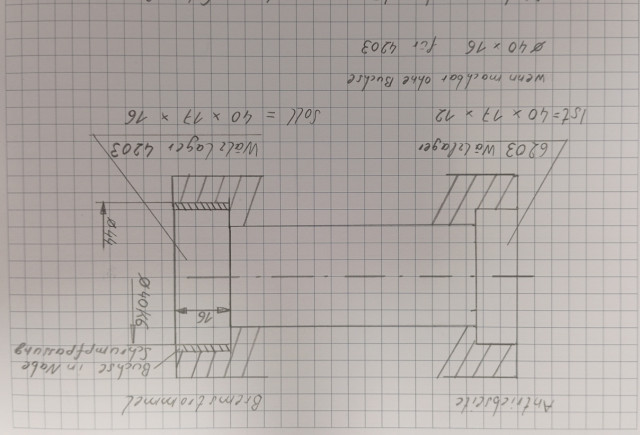 Antriebseite
Bremstrommel
Buchse in Nabe
Schrumpfpassung
Ø40K6
16
Ø44
6203 Wälzlager
Wälzlager 4203
Ist=40 x 17 x 12
Soll = 40 x 17 x 16
wenn machbar ohne Buchse
Ø 40 x 16 für 4203